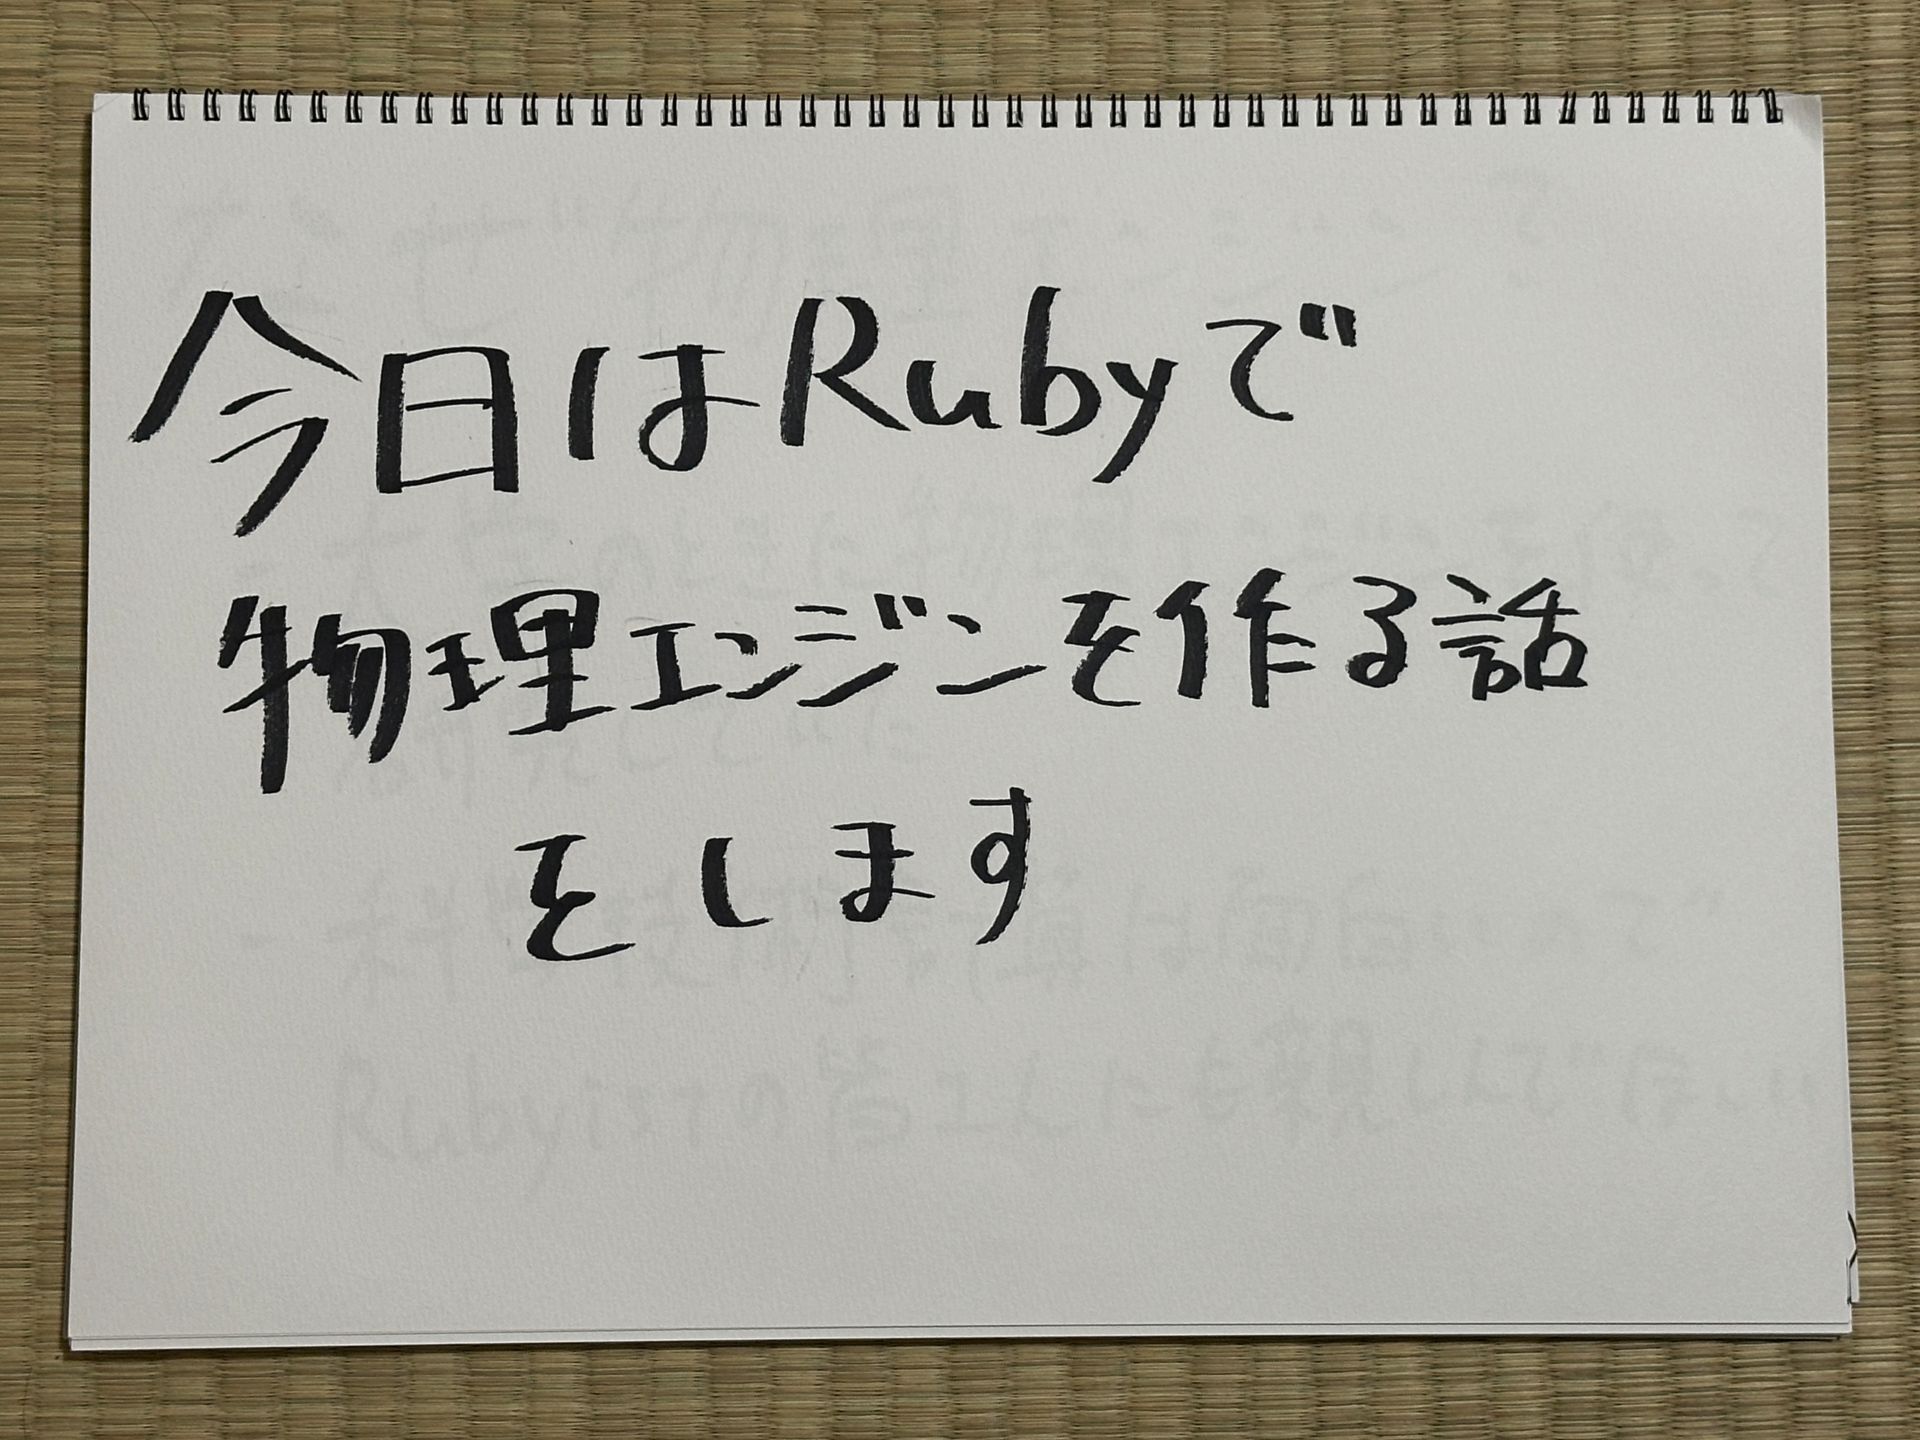 今日はRubyで
物理エンジンを作る話
をします